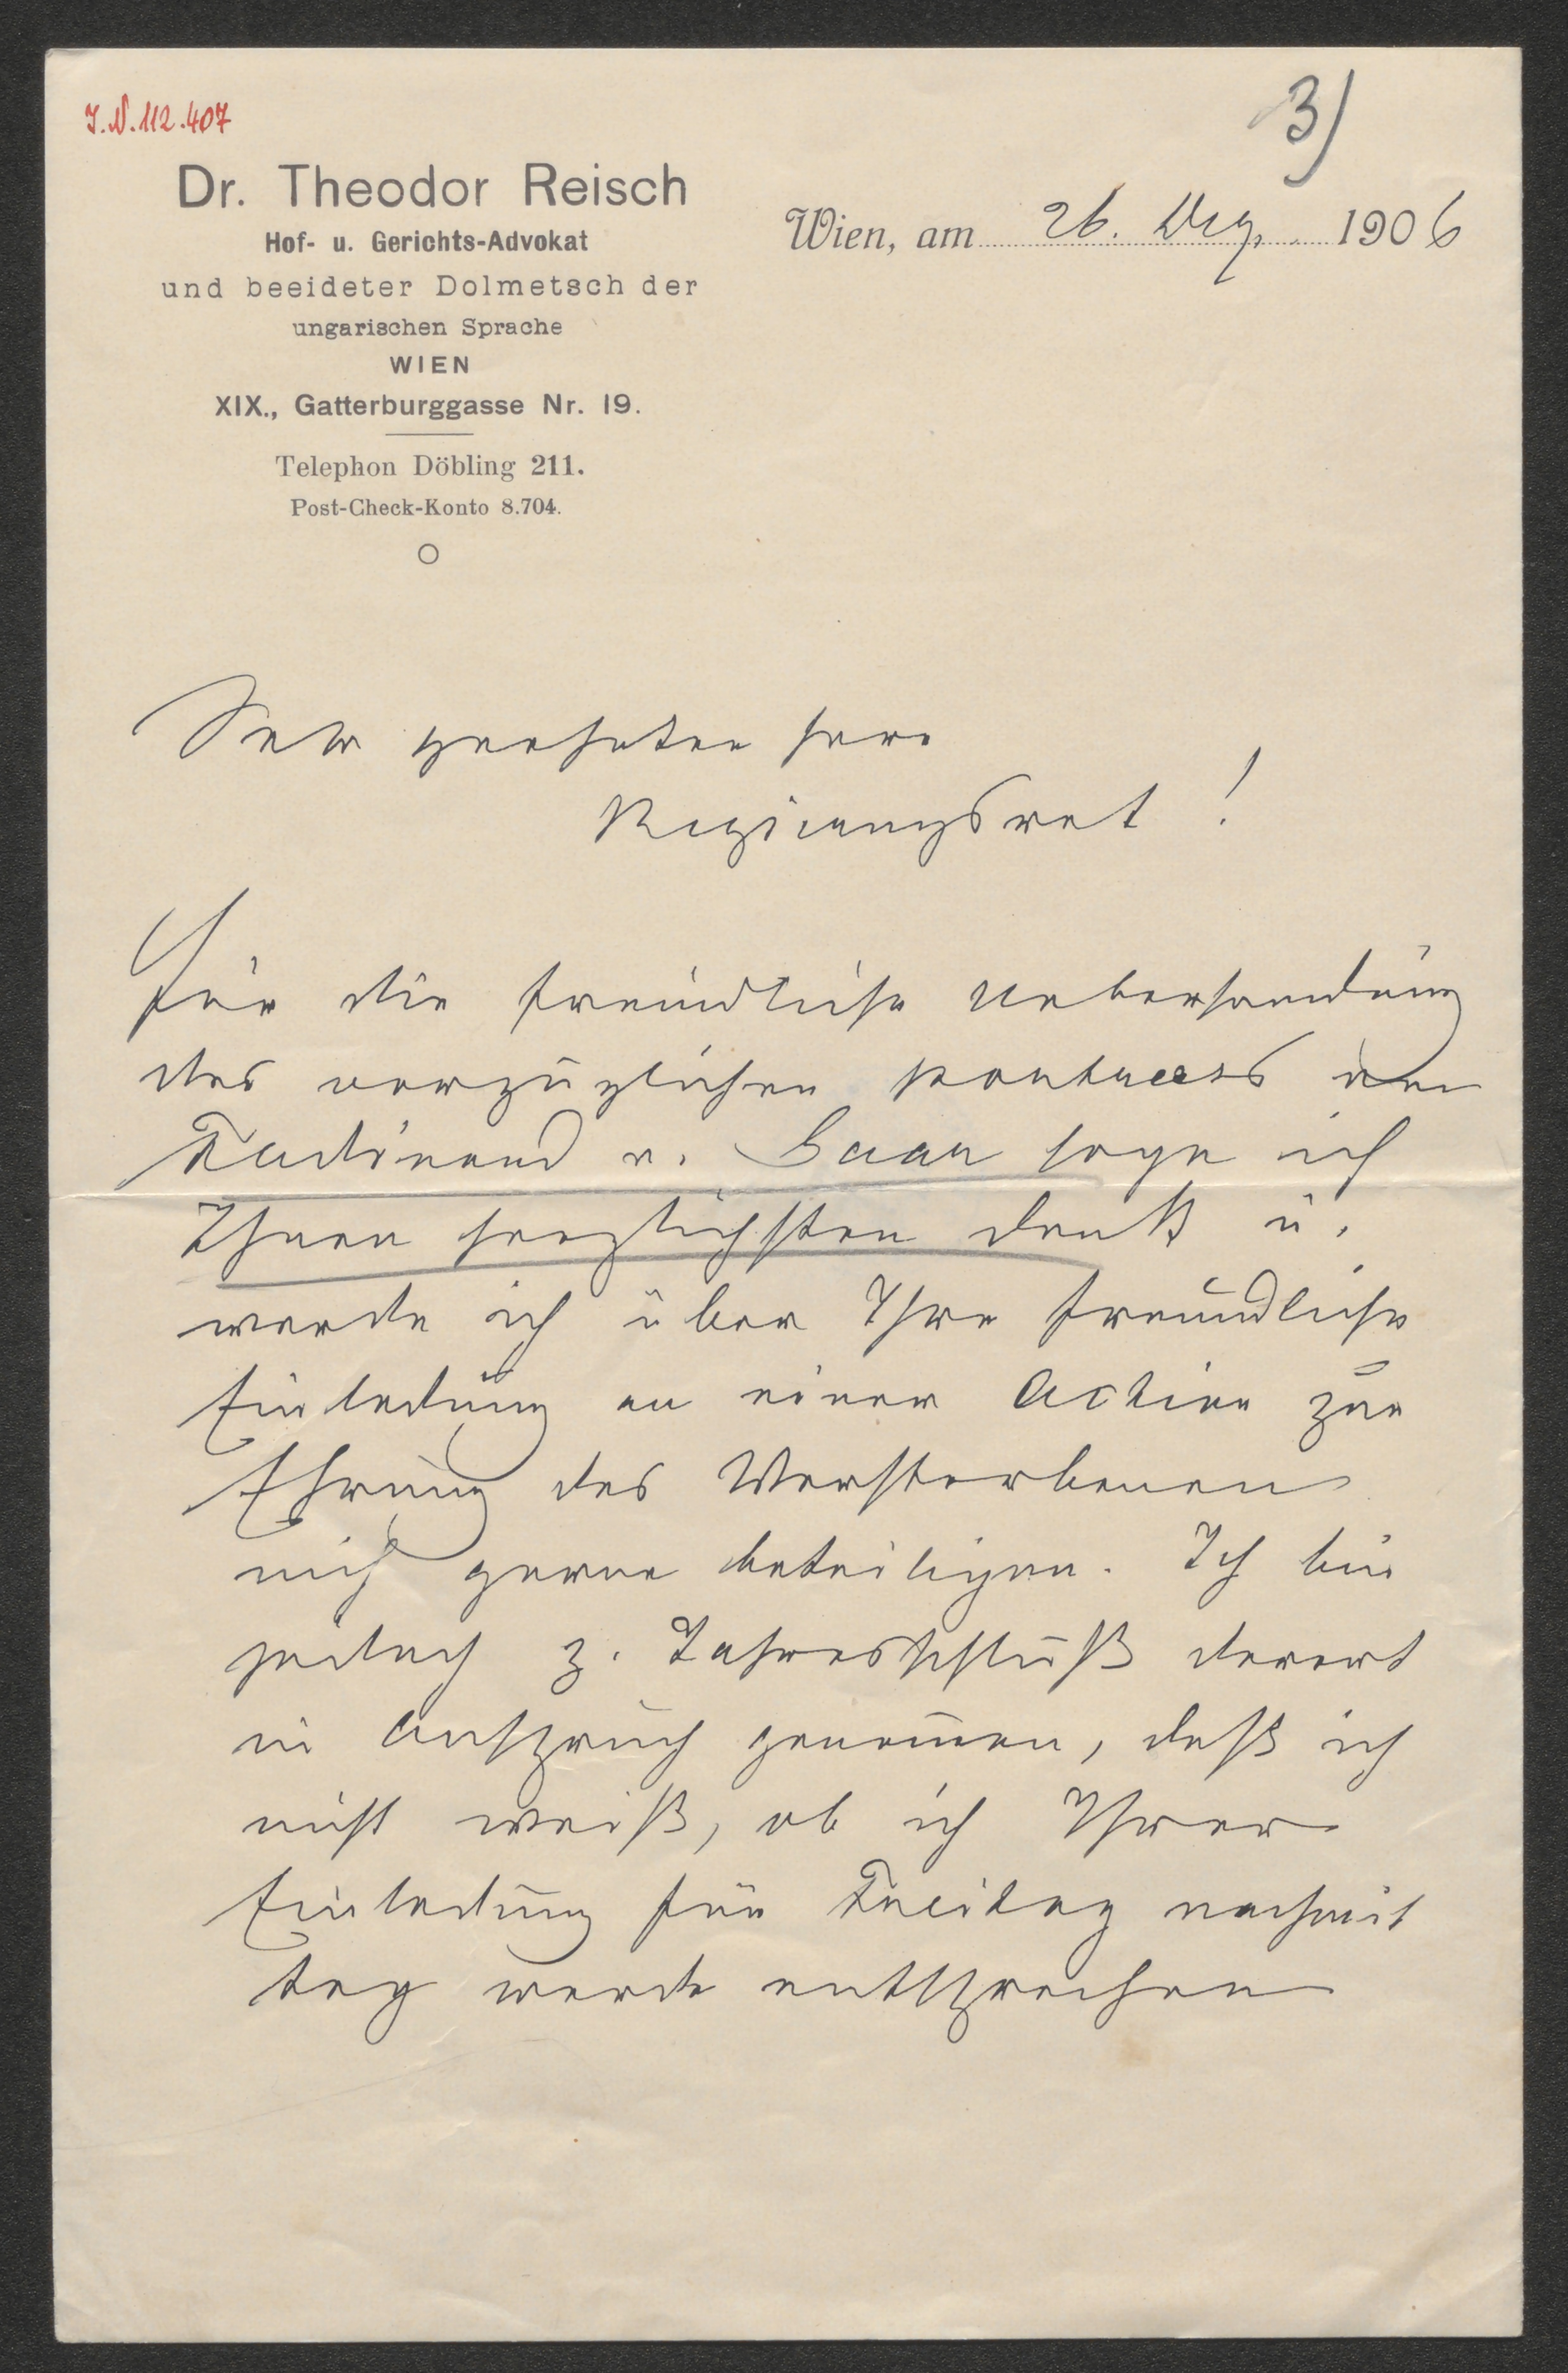 I.N. 112.407
3)
Dr. Theodor Reisch
Hof- u. Gerichts-Advokat
und beeideter Dolmetsch der
ungarischen Sprache
WIEN
XIX., Gatterburggasse Nr. 19.
Telephon Döbling 211.
Post-Check-Konto 8.704.
Wien, am 26. Dez. 1906
Sehr geehrter Herr
Regierungsrat!
Für die freundliche Uebersendung
des vorzüglichen Portraits von
Ferdinand v. Saar sage ich
Ihnen herzlichsten Dank u.
werde ich über Ihre freundliche
Einladung an einer Action zur
Ehrung des Verstorbenen
mich gerne beteiligen. Ich bin
jedoch z. Jahresschluß derart
in Anspruch genom̄en, daß ich
nicht weiß, ob ich Ihrer
Einladung für Freitag nachmit
tag werde entsprechen